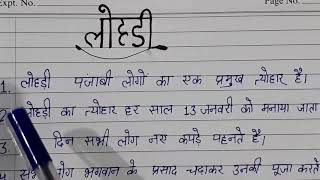 Expt. No.
Page No.
लोहडी
1. लोहडी पंजाबी लोगों का एक प्रमुख त्योहार है।
2. लोहडी का त्योहार हर साल 13 जनवरी को मनाया जाता
3 दिन सभी लोग नए कपड़े पहनते हैं।
लोग भगवान के प्रसाद चढाकर उनकी पूजा करते